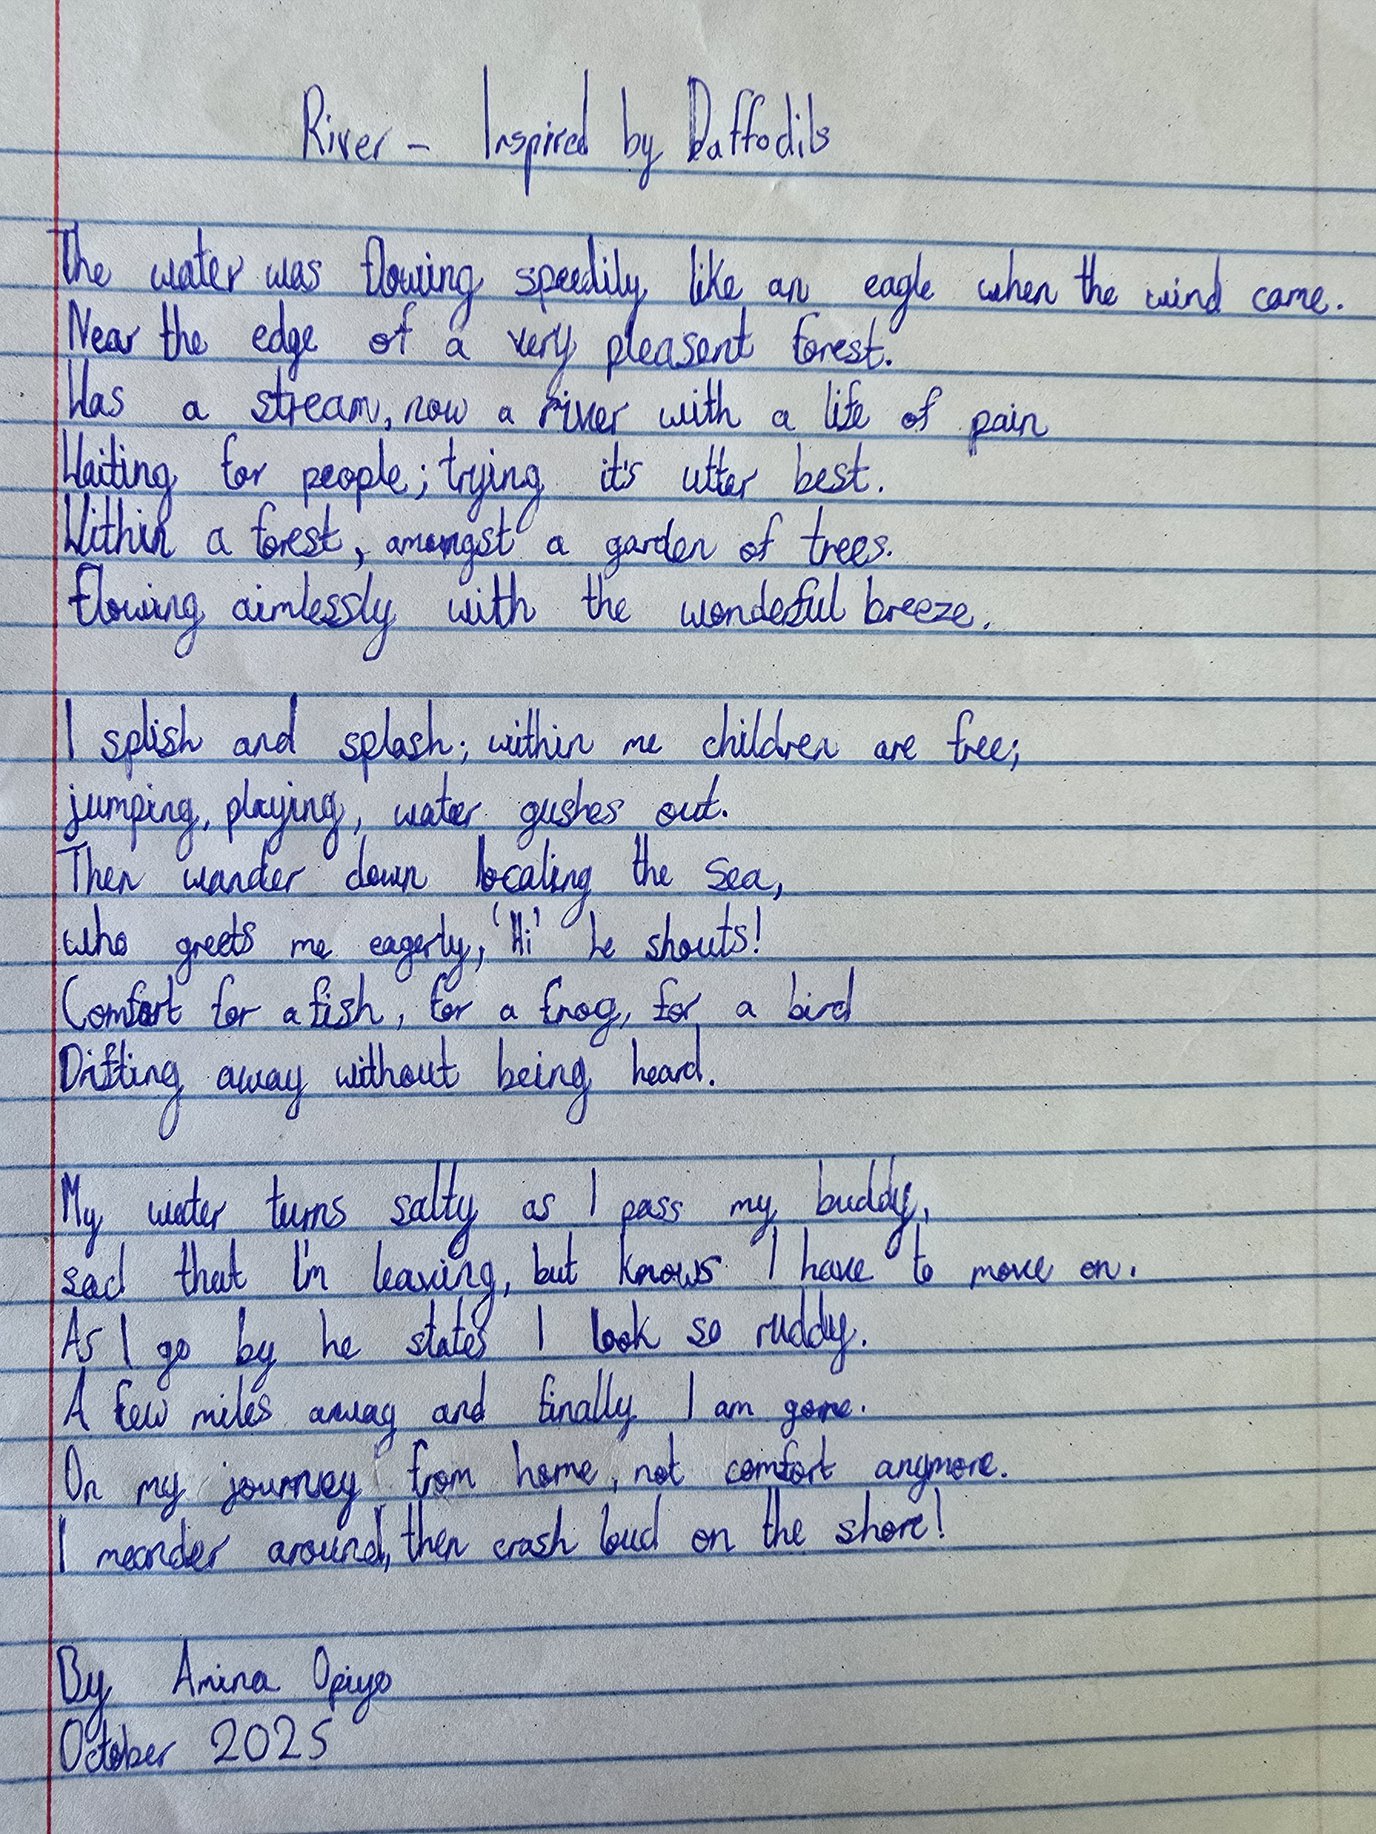 River - Inspired by Daffodils
The water was flowing speedily like an eagle when the wind came.
Near the edge of a very pleasant forest.
Was a stream, now a river with a life of pain
Waiting for people; trying it's utter best.
Within a forest, amongst a garden of trees.
Flowing aimlessly with the wonderful breeze.
I splish and splash; within me children are free;
jumping, playing, water gushes out.
Then wander down locating the sea,
who greets me eagerly, 'Hi' he shouts!
Comfort for a fish, for a frog, for a bird
Drifting away without being heard.
My water turns salty as I pass my buddy,
sad that I'm leaving, but knows I have to move on.
As I go by he states I look so ruddy.
A few miles away and finally I am gone.
On my journey from home, not comfort anymore.
I meander around, then crash loud on the shore!
By Amina Opiyo
October 2025